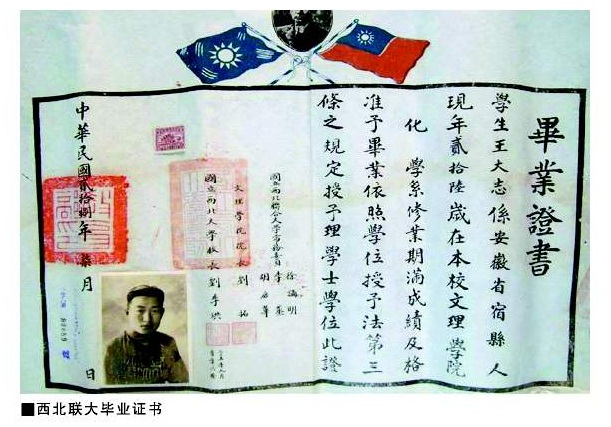 畢業證書
學生王大志係安徽省宿縣人
現年貳拾陸歲在本校文理學院
化學系修業期滿成績及格
准予畢業依照學位授予法第三
條之規定授予理學士學位此證
國立西北聯合大學常務委員
徐誦明
李蒸
胡庶華
文理學院院長劉拓
國立西北大學校長劉季洪
中華民國貳拾捌年柒月日
■西北联大毕业证书